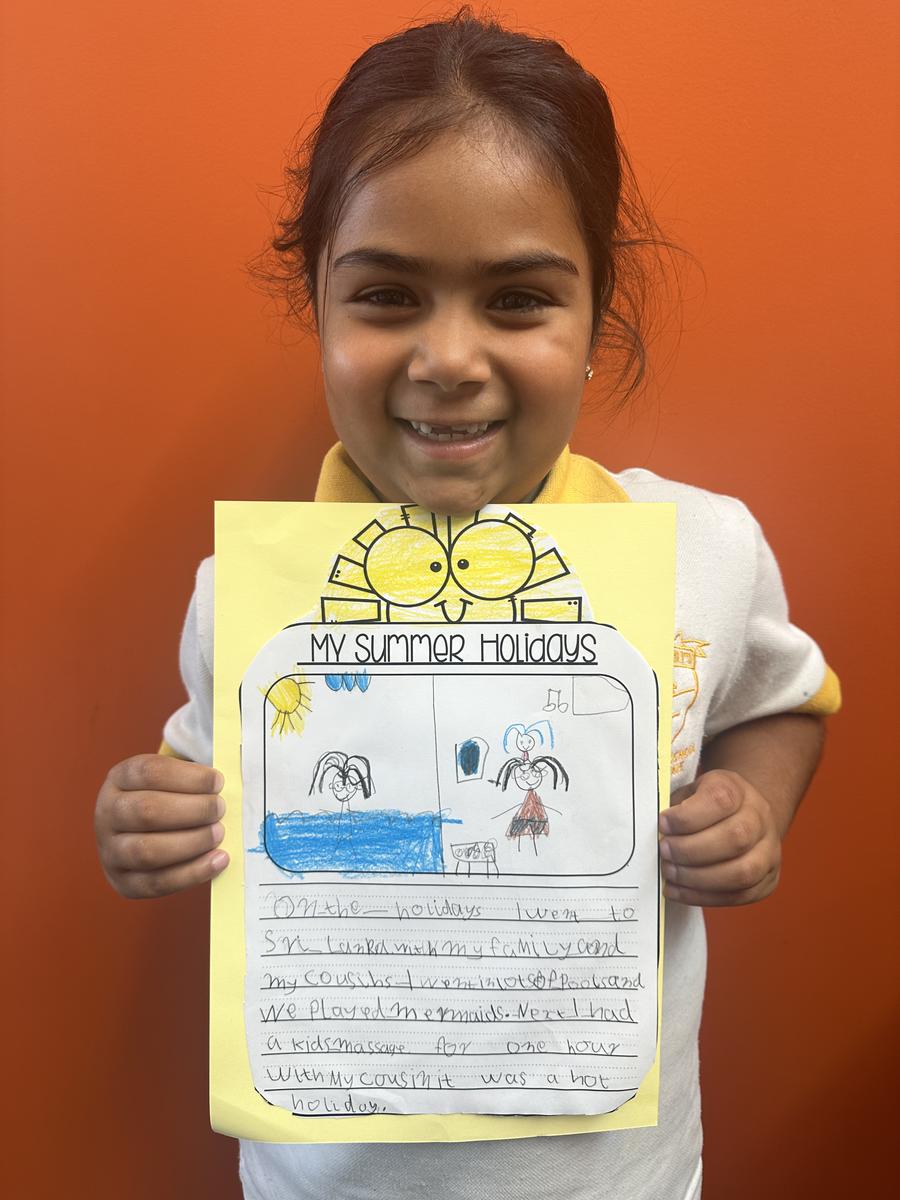 MY SUMMER HOLIDAYS
On the holidays I went to
Sri Lanka with my family and
my cousins I went in lots of pools and
we played mermaids. Next I had
a kids massage for one hour
with My cousin it was a hot
holiday.